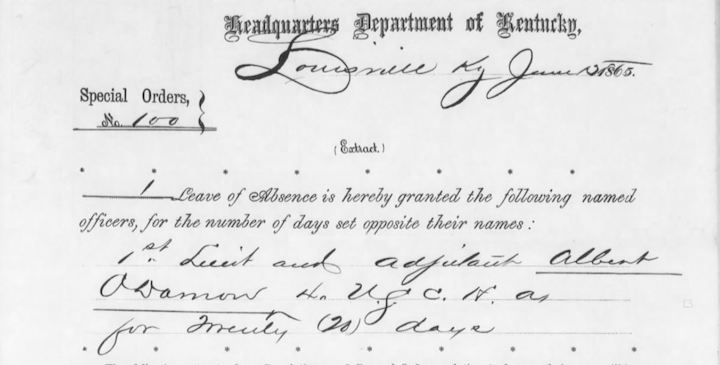 Headquarters Department of Kentucky,
Louisville Ky June 1865.
Special Orders,
No. 100
(Extract.)
* * * * * * *
1 Leave of Absence is hereby granted the following named
officers, for the number of days set opposite their names:
1st. Lieut and adjutant Albert
4. U.S.C. H. as
for Twenty (20) days
* * * * * * *